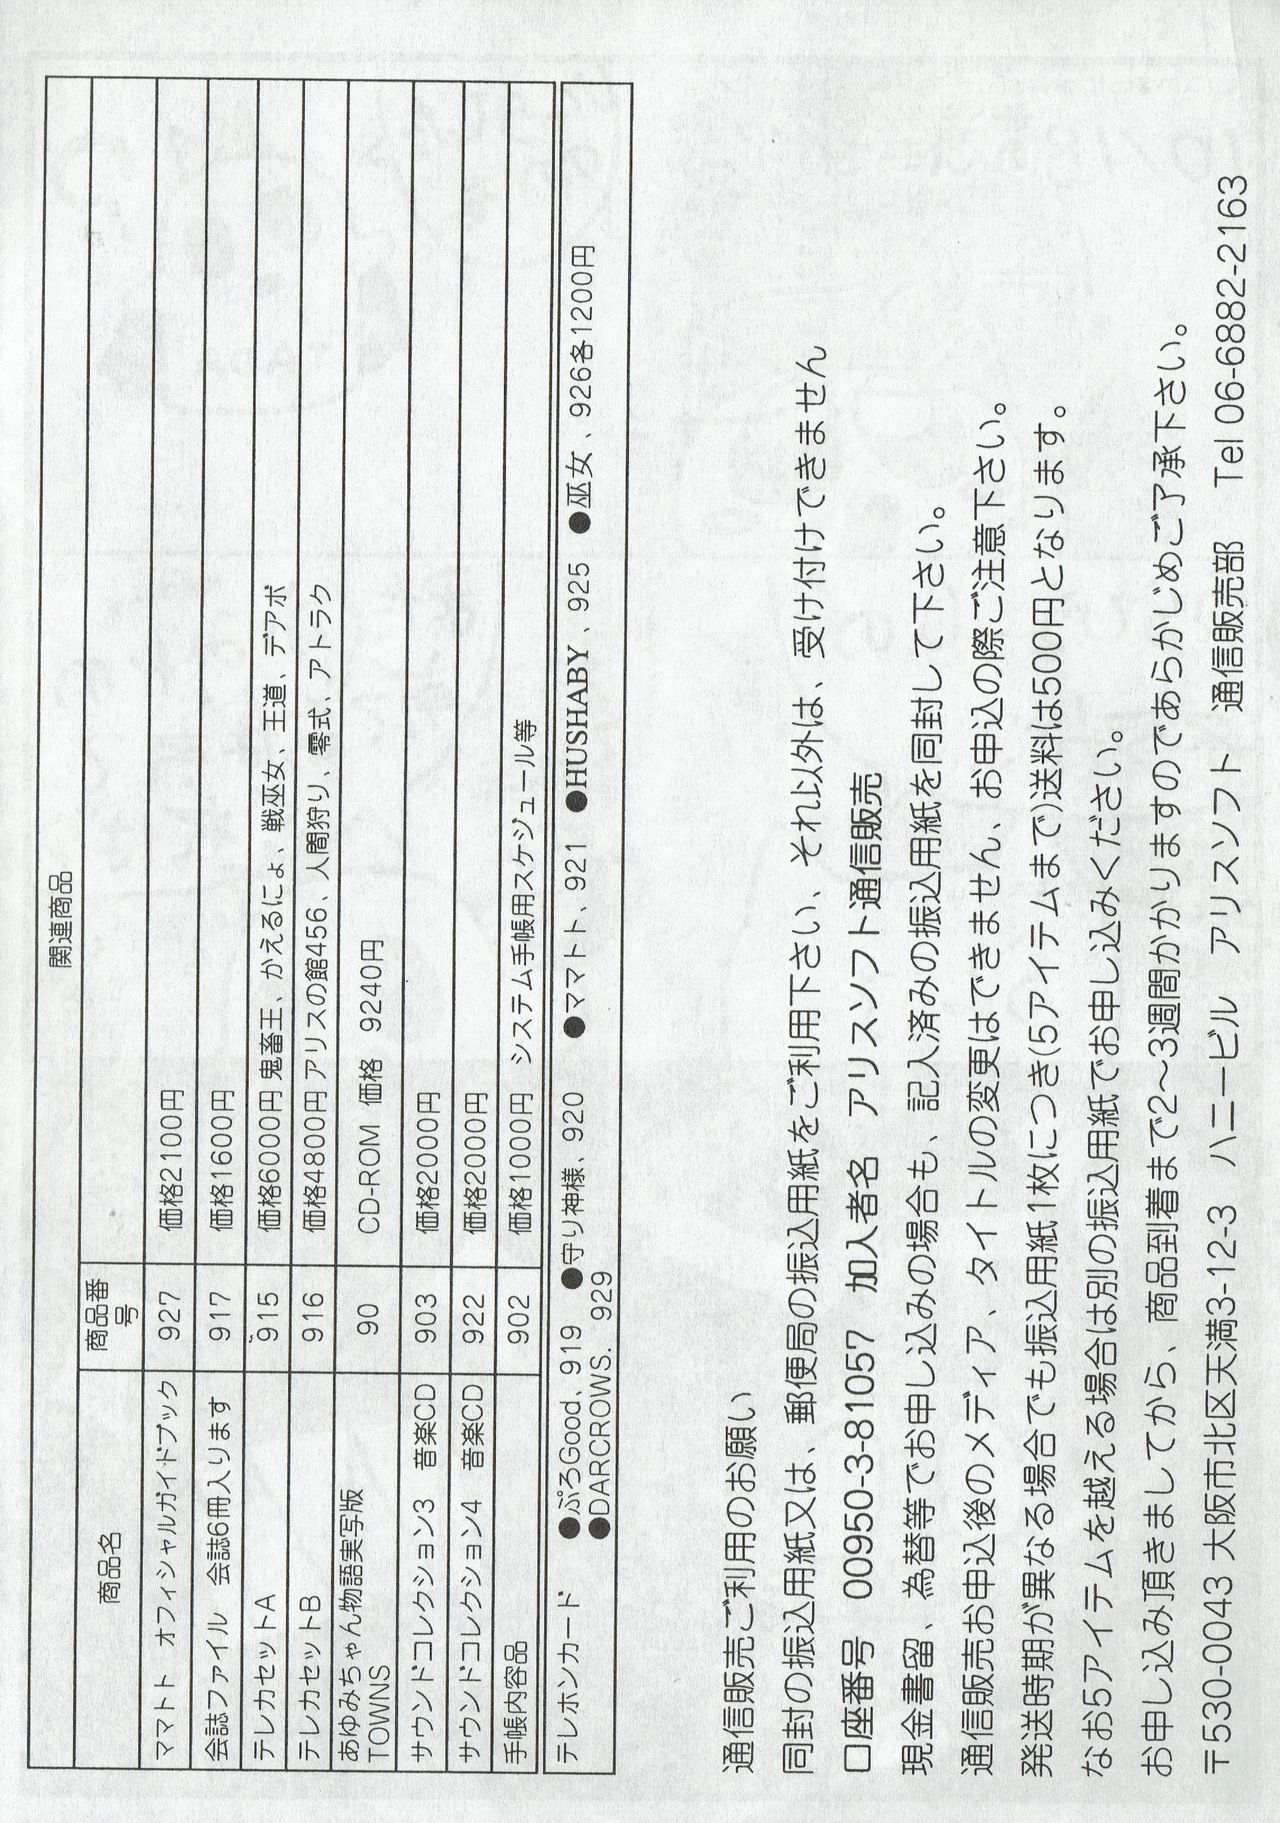 関連商品
商品名 商品番号
ママトト オフィシャルガイドブック 927 価格2100円
会誌ファイル 会誌6冊入ります 917 価格1600円
テレカセットA 915 価格6000円 鬼畜王、かえるにょ、戦巫女、王道、デアボ
テレカセットB 916 価格4800円 アリスの館456、人間狩り、零式、アトラク
あゆみちゃん物語実写版 TOWNS 90 CD-ROM 価格 9240円
サウンドコレクション3 音楽CD 903 価格2000円
サウンドコレクション4 音楽CD 922 価格2000円
手帳内容品 902 価格1000円 システム手帳用スケジュール等
テレホンカード ●ぷろGood、919 ●守り神様、920 ●ママトト、921 ●HUSHABY、925 ●巫女、926各1200円
●DARCROWS. 929
通信販売ご利用のお願い
同封の振込用紙又は、郵便局の振込用紙をご利用下さい、それ以外は、受け付けできません
口座番号 00950-3-81057 加入者名 アリスソフト通信販売
現金書留、為替等でお申し込みの場合も、記入済みの振込用紙を同封して下さい。
通信販売お申込後のメディア、タイトルの変更はできません、お申込の際ご注意下さい。
発送時期が異なる場合でも振込用紙1枚につき(5アイテムまで)送料は500円となります。
なお5アイテムを越える場合は別の振込用紙でお申し込みください。
お申し込み頂きましてから、商品到着まで2〜3週間かかりますのであらかじめご了承下さい。
〒530-0043 大阪市北区天満3-12-3 ハニービル アリスソフト 通信販売部 Tel 06-6882-2163